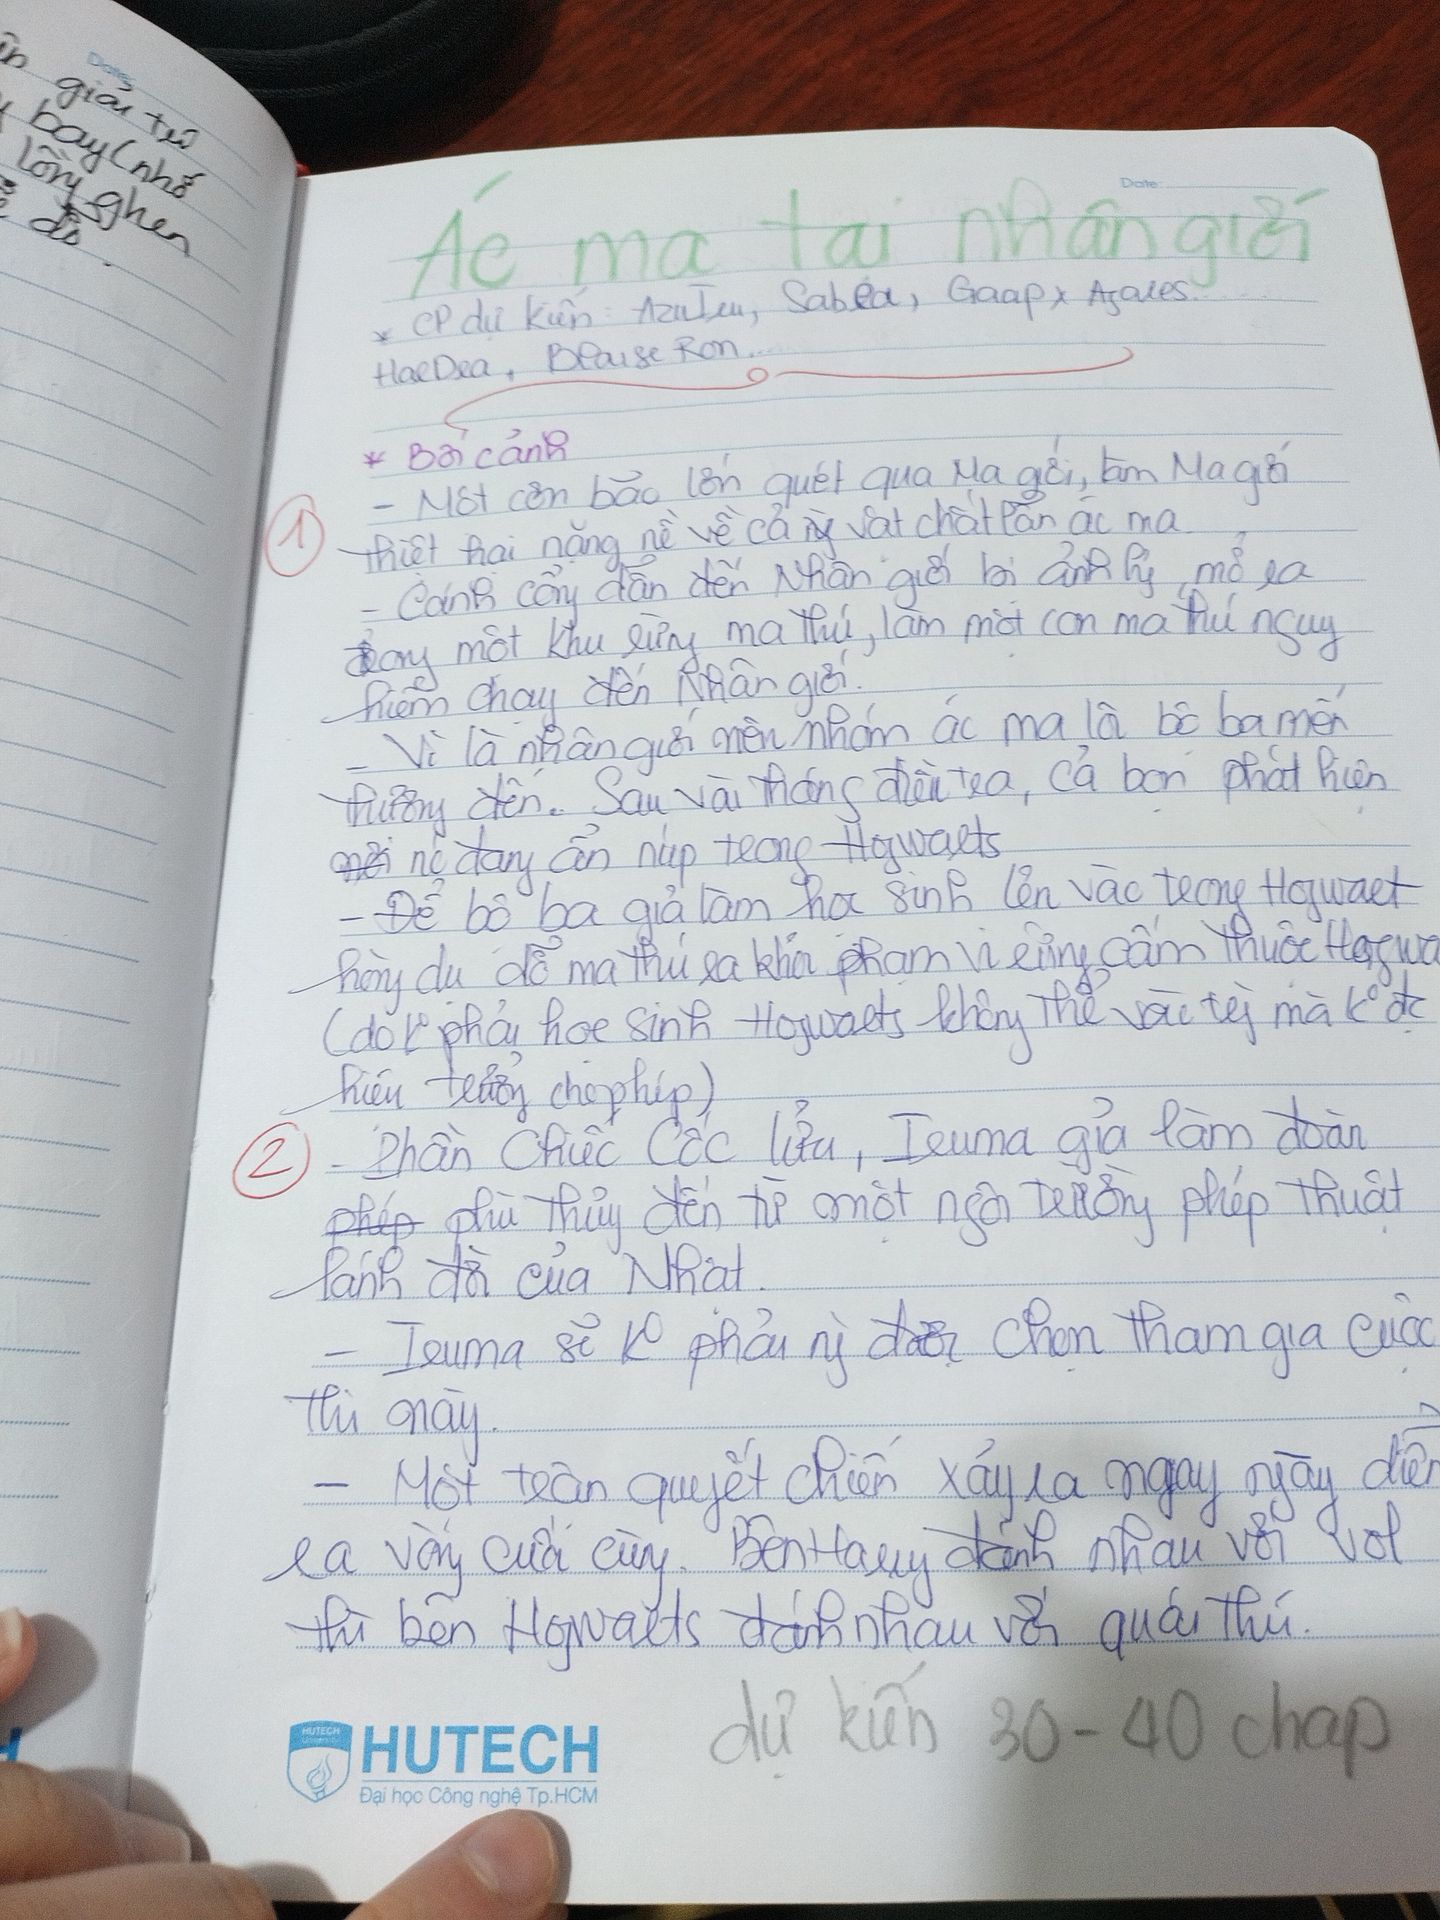 giải trí
bay (nhớ
lồng ghen
đó.
Date:
Date:
Ác ma tại nhân giới
* CP dự kiến: AzuIru, Sabro, Gaap x Azores
HarDra, Blaise Ron...
* Bối cảnh
1 - Một cơn bão lớn quét qua Ma giới, làm Ma giới
thiệt hại nặng nề về cả vật chất lẫn ác ma
- Cánh cổng dẫn đến Nhân giới bị ảnh hg, mở ra
trong một khu rừng ma thú, làm một con ma thú nguy
hiểm chạy đến Nhân giới.
- Vì là nhân giới nên nhóm ác ma là bộ ba mến
thương đến. Sau vài tháng điều tra, cả bọn phát hiện
nó đang ẩn núp trong Hogwarts
- Để bộ ba giả làm học sinh lẻn vào trong Hogwart
hòng dụ dỗ ma thú ra khỏi phạm vi rừng cấm thuộc Hogwa
(do k° phải học sinh Hogwarts không thể vào tùy mà k° đc
hiệu trưởng cho phép)
2 - Phần Chiếc Cốc lửa, Iruma giả làm đoàn
phép phù thủy đến từ một ngôi trường phép thuật
lánh đời của Nhật.
- Iruma sẽ k° phải ng được chọn tham gia cuộc
thi này.
- Một trận quyết chiến xảy ra ngay ngày diễn
ra vòng cuối cùng. Bên Harry đánh nhau với Vol
thì bên Hogwarts đánh nhau với quái thú.
dự kiến 30-40 chap
HUTECH
HUTECH
Đại học Công nghệ Tp.HCM